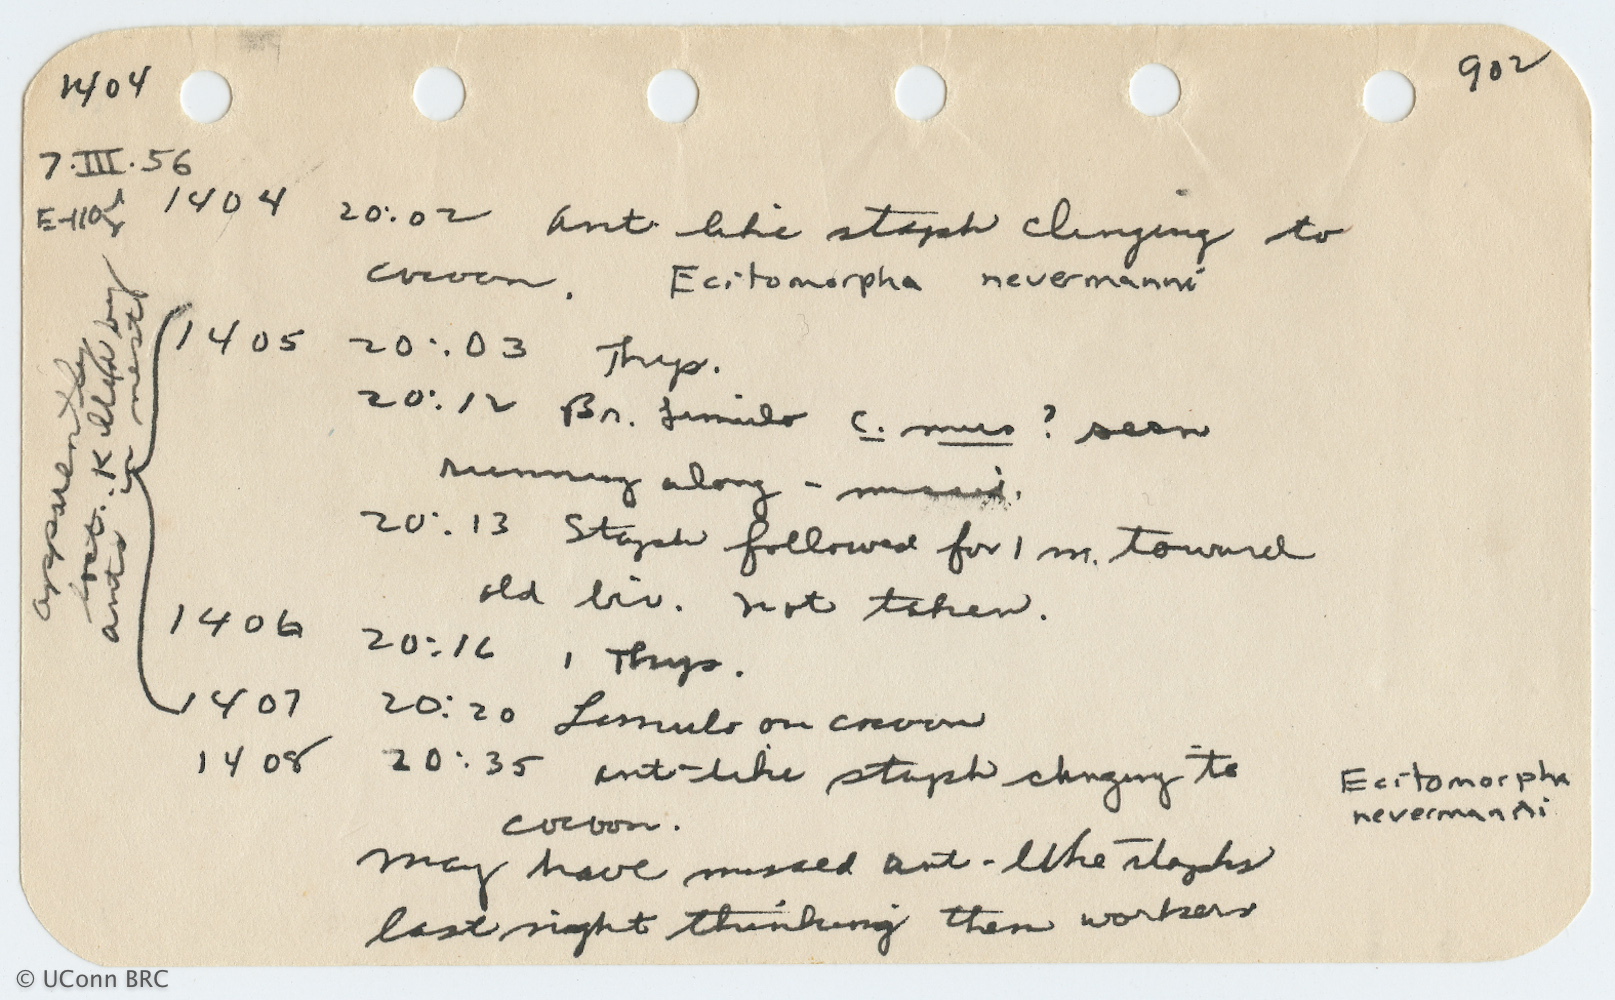 1404
902
7·III·56
E-110
1404 20:02 Ant-like staph clinging to
cocoon. Ecitomorpha nevermanni
1405 20:03 Thys.
20:12 Br. Limulo C. mus? seen
running along - missed.
20:13 Staph followed for 1 m. toward
old biv. Not taken.
1406 20:16 1 Thys.
1407 20:20 Limulo on cocoon
1408 20:35 ant-like staph clinging to
cocoon.
Ecitomorpha
nevermanni
May have missed ant-like staphs
last night thinking them workers
apparently
lost. Killed by
ants in nest
© UConn BRC